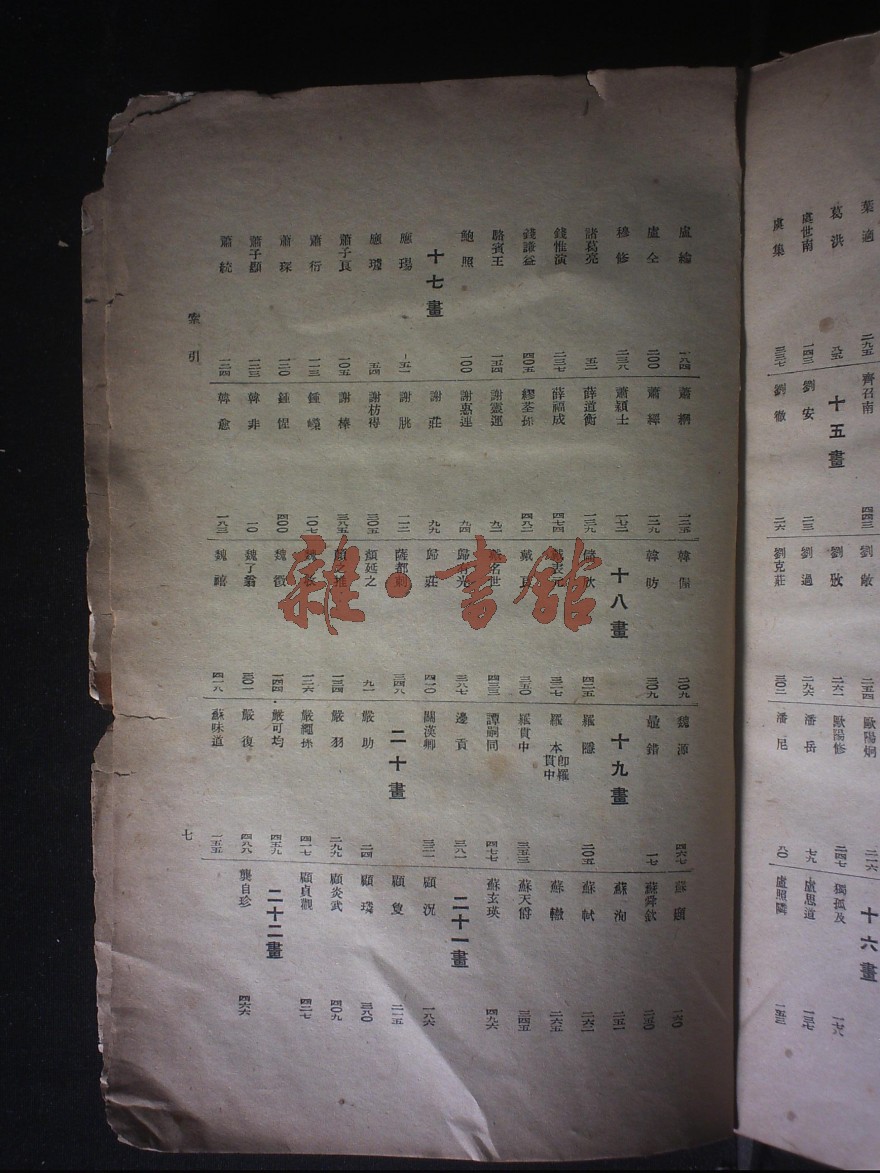 葉適 二九五
葛洪 八五
虞世南 一四三
虞集 三三七
齊召南 四四三
十五畫
劉安 二三
劉徹 二六
劉敞 二五四
劉攽 二六二
劉過 二九六
劉克莊 三〇二
歐陽炯 二一六
歐陽修 二四七
潘岳 七九
潘尼 八〇
十六畫
獨孤及 一七八
盧思道 一三七
盧照鄰 一五三
盧綸 一八四
盧仝 二〇〇
穆修 二三八
諸葛亮 五二
錢惟演 二三七
錢謙益 四〇五
駱賓王 一五四
鮑照 一〇〇
十七畫
應瑒 五一
應璩 五四
蕭子良 一〇五
蕭衍 一一三
蕭琛 一二〇
蕭子顯 一二三
蕭統 一二四
蕭綱 一二五
蕭繹 一二九
蕭穎士 一七二
薛道衡 一三九
薛福成 四七四
繆荃孫 四八二
謝靈運 九二
謝惠連 九四
謝莊 九九
謝朓 一一二
謝枋得 三〇五
謝榛 三八五
鍾嶸 一〇七
鍾惺 四〇〇
韓非 一〇
韓愈 一八三
韓偓 二〇九
韓昉 三〇九
十八畫
儲欣 四二五
戴表元 三二七
戴良 三五〇
戴名世 四三三
歸有光 三八七
歸莊 四一〇
薩都剌 三四八
顏延之 九一
顏之推 一三四
魏收 一二六
魏徵 一四四
魏了翁 三〇一
魏禧 四一八
魏源 四六七
鼂錯 一七
十九畫
羅隱 二〇五
羅本 即羅貫中
羅貫中 三五三
譚嗣同 四七七
邊貢 三八一
關漢卿 三二一
二十畫
嚴助 二四
嚴羽 二九九
嚴繩孫 四一七
嚴可均 四五九
嚴復 四八八
蘇味道 一五五
蘇頲 一六〇
蘇舜欽 二五〇
蘇洵 二五一
蘇軾 二六二
蘇轍 二六五
蘇天爵 三四五
蘇玄瑛 四九六
二十一畫
顧況 一八六
顧夐 二一五
顧璘 三八〇
顧炎武 四〇九
顧貞觀 四二七
二十二畫
龔自珍 四六六
索引
七
雜·書館